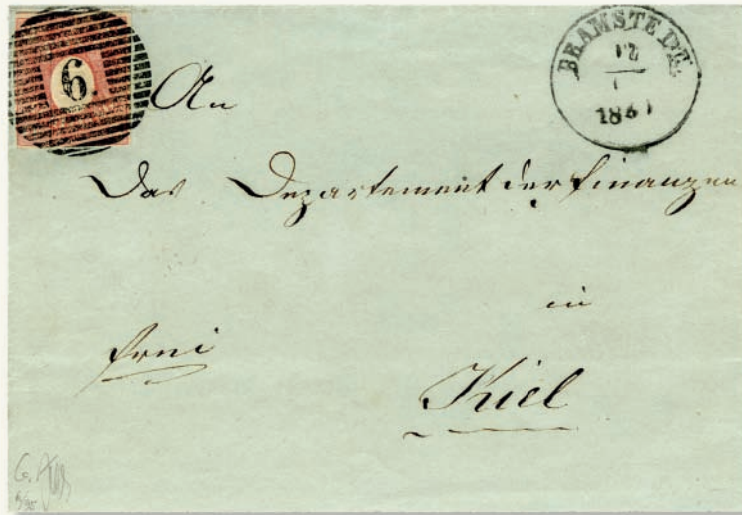 6
BRAMSTEDT
12
1
An
Das Departement der Finanzen
in
frei
Kiel